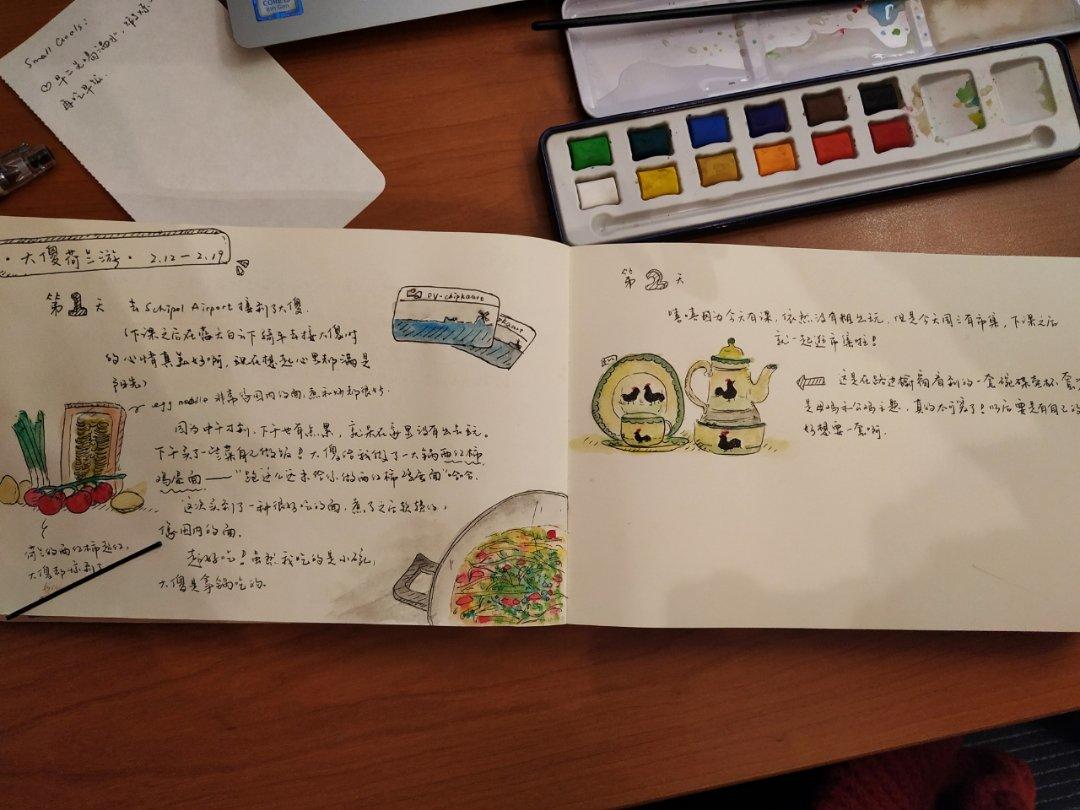 Small Goals:
早上先喝温水,
再吃早饭
CORE i5
8th Gen
·大傻荷兰游· 2.12—2.19
第1天 去Schipol Airport接到了大傻.
(下课之后在蓝天白云下骑车去接大傻时
的心情真美好啊,现在想起心里都满是
阳光)
egg noodle 非常像国内的面,煮和炒都很好.
因为中午才到,下午也有点累,就呆在家里没有出去玩。
下午买了一些菜自己做饭!大傻给我做了一大锅西红柿
鸡蛋面——"跑这么远来给你做西红柿鸡蛋面"哈哈.
这次买到了一种很好吃的面,煮了之后软软的,
像国内的面.
超好吃!虽然我吃的是小碗,
大傻是拿锅吃的.
荷兰的西红柿超红,
大傻都惊到了
OV-chipkaart
第2天
嘻嘻因为今天有课,依然没有出去玩,但是今天周三有市集,下课之后
就一起逛市集啦!
这是在路边橱窗看到的一套碗碟茶杯,套
是母鸡和公鸡主题,真的太可爱了!以后要是有自己的
好想要一套啊.